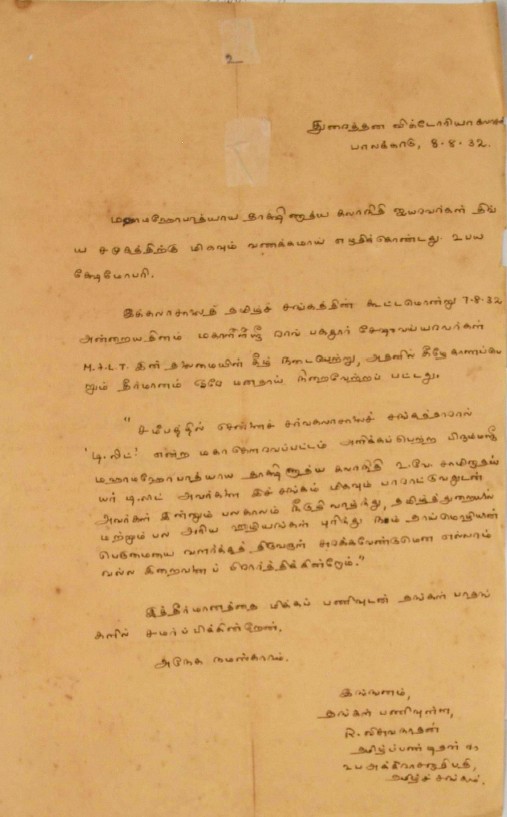 2
துரைத்தன விக்டோரியா கலாசாலை
பாலக்காடு, 8-8-32.
மஹாமஹோபாத்யாய தாக்ஷிணாத்ய கலாநிதி ஐயரவர்கள் திவ்
ய சமுகத்திற்கு மிகவும் வணக்கமாய் எழுதிக்கொண்டது. உபய
க்ஷேமோபரி.
இக்கலாசாலைத் தமிழ்ச் சங்கத்தின் கூட்டமொன்று 7-8-32
அன்றையதினம் மகாஸ்ரீஸ்ரீ ராவ் பகதூர் சேஷையரவர்கள்
M.A.L.T. இன் தலைமையின் கீழ் நடைபெற்று, அதனில் கீழே காணப்பெ
றும் தீர்மானம் ஒரே மனதாய் நிறைவேற்றப் பட்டது.
"சமீபத்தில் சென்னைச் சர்வகலாசாலைச் சங்கத்தாரால்
'டி.லிட்' என்ற மகா கௌரவப்பட்டம் அளிக்கப்பெற்ற பிரும்மஸ்ரீ
மஹாமஹோபாத்யாய தாக்ஷிணாத்ய கலாநிதி உ.வே. சாமிநாதை
யர் டி.லிட் அவர்களை இச்சங்கம் மிகவும் பாராட்டுவதுடன்
அவர்கள் இன்னும் பலகாலம் நீடூழி வாழ்ந்து, தமிழ்த்துறையில்
மற்றும் பல அரிய ஊழியங்கள் புரிந்து நம் தாய்மொழியின்
பெருமையை வளர்க்கத் திருவருள் சுரக்கவேண்டுமென எல்லாம்
வல்ல இறைவனைப் பிரார்த்திக்கின்றோம்."
இத்தீர்மானத்தை மிக்கப் பணிவுடன் தங்கள் பாதங்
களில் சமர்ப்பிக்கின்றேன்.
அநேக நமஸ்காரம்.
இங்ஙனம்,
தங்கள் பணிவுள்ள,
R. விசுவநாதன்
தமிழ்ப்பண்டிதன்
உப அக்கிராசனாதிபதி,
தமிழ்ச் சங்கம்.